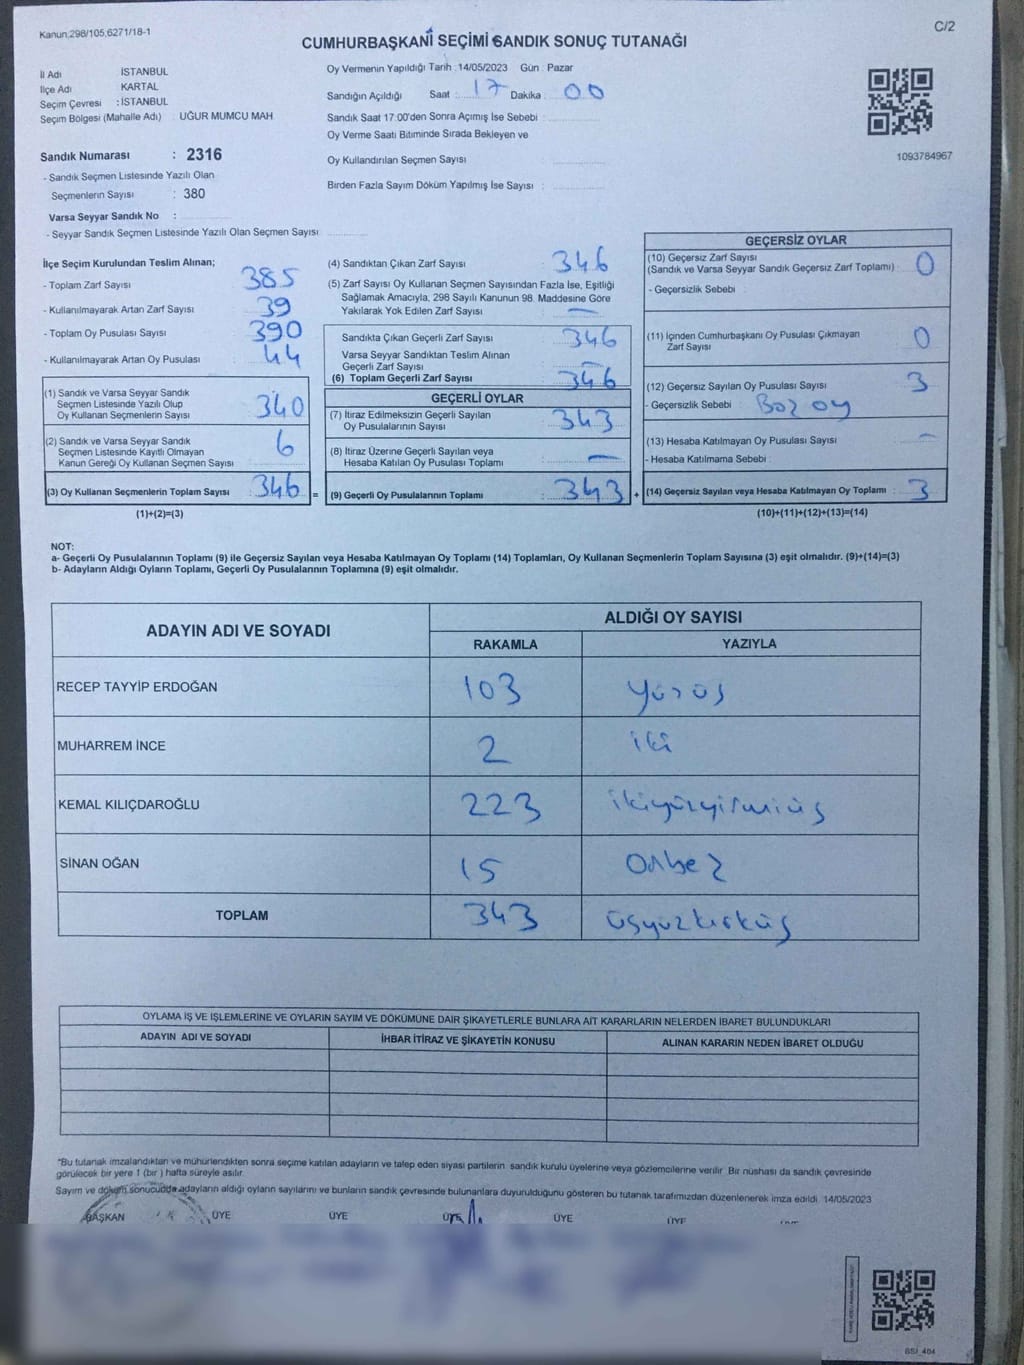 Kanun,298/105,6271/18-1
C/2
CUMHURBAŞKANİ SEÇİMİ SANDIK SONUÇ TUTANAĞI
İl Adı İSTANBUL
İlçe Adı KARTAL
Seçim Çevresi : İSTANBUL
Seçim Bölgesi (Mahalle Adı) UĞUR MUMCU MAH
Sandık Numarası : 2316
- Sandık Seçmen Listesinde Yazılı Olan
Seçmenlerin Sayısı : 380
Varsa Seyyar Sandık No :
- Seyyar Sandık Seçmen Listesinde Yazılı Olan Seçmen Sayısı
Oy Vermenin Yapıldığı Tarih :14/05/2023 Gün : Pazar
Sandığın Açıldığı Saat : 17 Dakika : 00
Sandık Saat 17:00'den Sonra Açımış İse Sebebi :
Oy Verme Saati Bitiminde Sırada Bekleyen ve
Oy Kullandırılan Seçmen Sayısı :
Birden Fazla Sayım Döküm Yapılmış İse Sayısı :
1093784967
İlçe Seçim Kurulundan Teslim Alınan;
- Toplam Zarf Sayısı 385
- Kullanılmayarak Artan Zarf Sayısı 39
- Toplam Oy Pusulası Sayısı 390
- Kullanılmayarak Artan Oy Pusulası 44
(1) Sandık ve Varsa Seyyar Sandık
Seçmen Listesinde Yazılı Olup
Oy Kullanan Seçmenlerin Sayısı 340
(2) Sandık ve Varsa Seyyar Sandık
Seçmen Listesinde Kayıtlı Olmayan
Kanun Gereği Oy Kullanan Seçmen Sayısı 6
(3) Oy Kullanan Seçmenlerin Toplam Sayısı 346 =
(1)+(2)=(3)
(4) Sandıktan Çıkan Zarf Sayısı 346
(5) Zarf Sayısı Oy Kullanan Seçmen Sayısından Fazla İse, Eşitliği
Sağlamak Amacıyla, 298 Sayılı Kanunun 98. Maddesine Göre
Yakılarak Yok Edilen Zarf Sayısı : —
Sandıkta Çıkan Geçerli Zarf Sayısı 346
Varsa Seyyar Sandıktan Teslim Alınan
Geçerli Zarf Sayısı —
(6) Toplam Geçerli Zarf Sayısı 346
GEÇERLİ OYLAR
(7) İtiraz Edilmeksizin Geçerli Sayılan
Oy Pusulalarının Sayısı 343
(8) İtiraz Üzerine Geçerli Sayılan veya
Hesaba Katılan Oy Pusulası Toplamı —
(9) Geçerli Oy Pusulalarının Toplamı : 343 +
GEÇERSİZ OYLAR
(10) Geçersiz Zarf Sayısı
(Sandık ve Varsa Seyyar Sandık Geçersiz Zarf Toplamı) : 0
- Geçersizlik Sebebi :
(11) İçinden Cumhurbaşkanı Oy Pusulası Çıkmayan
Zarf Sayısı 0
(12) Geçersiz Sayılan Oy Pusulası Sayısı 3
- Geçersizlik Sebebi : Boz oy
(13) Hesaba Katılmayan Oy Pusulası Sayısı —
- Hesaba Katılmama Sebebi :
(14) Geçersiz Sayılan veya Hesaba Katılmayan Oy Toplamı : 3
(10)+(11)+(12)+(13)=(14)
NOT:
a- Geçerli Oy Pusulalarının Toplamı (9) ile Geçersiz Sayılan veya Hesaba Katılmayan Oy Toplamı (14) Toplamları, Oy Kullanan Seçmenlerin Toplam Sayısına (3) eşit olmalıdır. (9)+(14)=(3)
b- Adayların Aldığı Oyların Toplamı, Geçerli Oy Pusulalarının Toplamına (9) eşit olmalıdır.
ADAYIN ADI VE SOYADI ALDIĞI OY SAYISI
RAKAMLA YAZIYLA
RECEP TAYYİP ERDOĞAN 103 yüzüş
MUHARREM İNCE 2 iki
KEMAL KILIÇDAROĞLU 223 ikiyüzyirmiüş
SİNAN OĞAN 15 Onbeş
TOPLAM 343 üşyüzkırküş
OYLAMA İŞ VE İŞLEMLERİNE VE OYLARIN SAYIM VE DÖKÜMÜNE DAİR ŞİKAYETLERLE BUNLARA AİT KARARLARIN NELERDEN İBARET BULUNDUKLARI
ADAYIN ADI VE SOYADI İHBAR İTİRAZ VE ŞİKAYETİN KONUSU ALINAN KARARIN NEDEN İBARET OLDUĞU
*Bu tutanak imzalandıktan ve mühürlendikten sonra seçime katılan adayların ve talep eden siyasi partilerin sandık kurulu üyelerine veya gözlemcilerine verilir. Bir nüshası da sandık çevresinde
görülecek bir yere 1 (bir ) hafta süreyle asılır.
Sayım ve döküm sonucunda adayların aldığı oyların sayılarını ve bunların sandık çevresinde bulunanlara duyurulduğunu gösteren bu tutanak tarafımızdan düzenlenerek imza edildi. 14/05/2023
BAŞKAN ÜYE ÜYE ÜYE ÜYE ÜYE